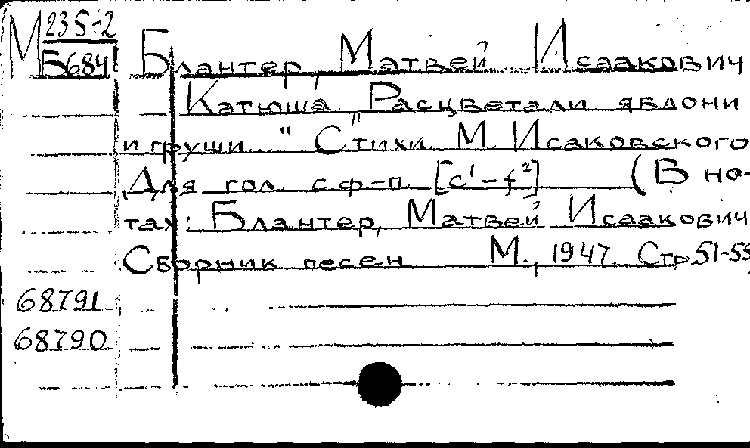 М 235-2
Б684
Блантер, Матвей Исаакович
Катюша "Расцветали яблони
и груши..." Стихи М. Исаковского
Для гол. с ф-п. [c¹-f²] (В но-
тах: Блантер, Матвей Исаакович
Сборник песен М., 1947. Стр. 51-53
68791
68790